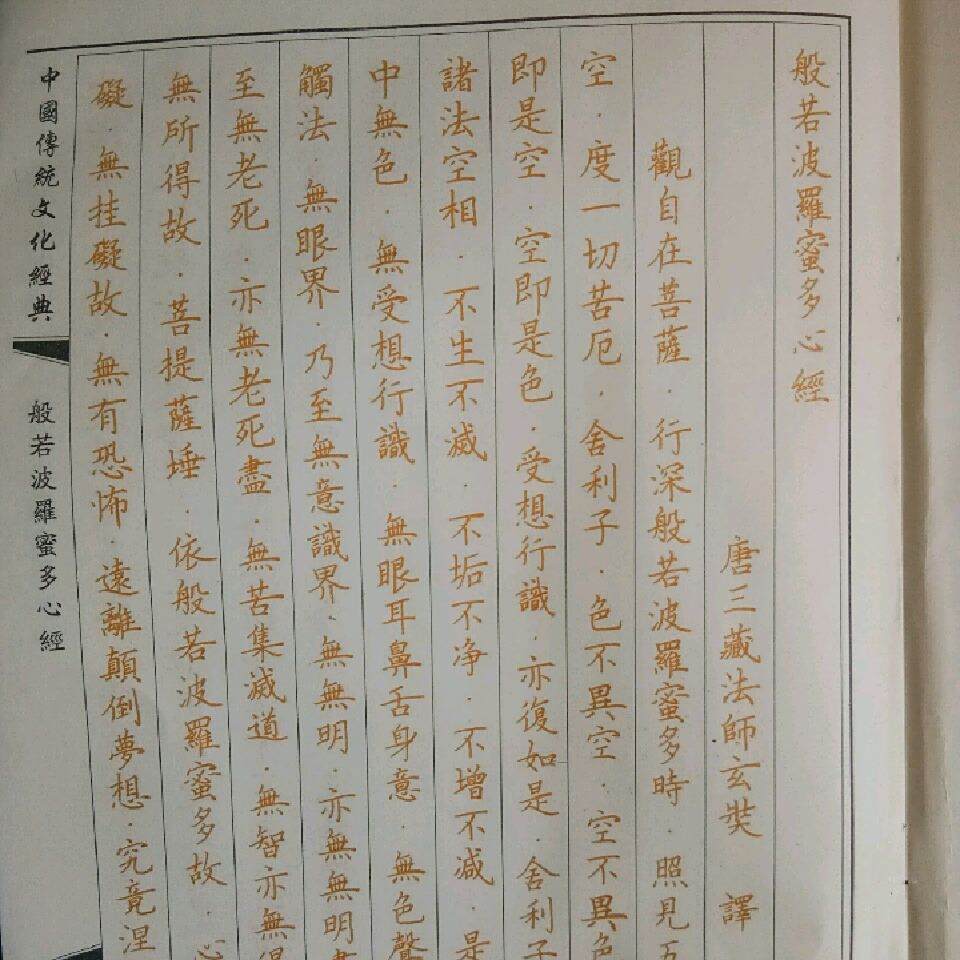 般若波羅蜜多心經
唐三藏法師玄奘 譯
觀自在菩薩·行深般若波羅蜜多時·照見五
空·度一切苦厄·舍利子·色不異空·空不異色
即是空·空即是色·受想行識·亦復如是·舍利子
諸法空相·不生不滅·不垢不净·不增不减·是
中無色·無受想行識·無眼耳鼻舌身意·無色聲
觸法·無眼界·乃至無意識界·無無明·亦無無明盡
至無老死·亦無老死盡·無苦集滅道·無智亦無得
無所得故·菩提薩埵·依般若波羅蜜多故·心
礙·無挂礙故·無有恐怖·遠離顛倒夢想·究竟涅
中國傳統文化經典
般若波羅蜜多心經